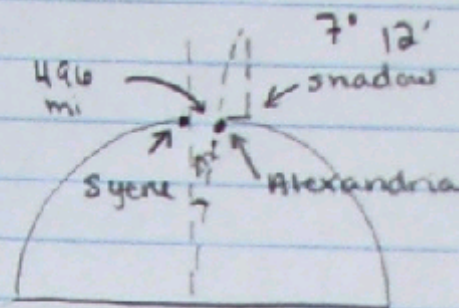 7° 12'
496
mi
shadow
Syene
Alexandria